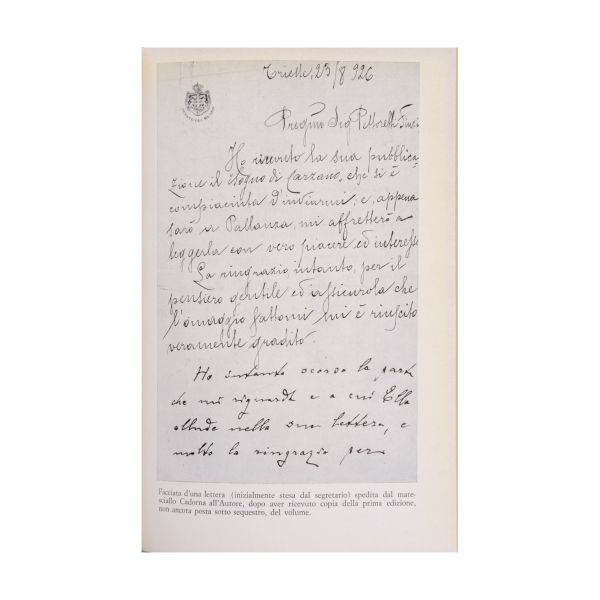 Trieste, 23/8 926
Pregmo Sig Pettorelli Finzi
Ho ricevuto la sua pubblica-
zione il sogno di Carzano, che si è
compiaciuta d'inviarmi; e, appena
sarò a Pallanza, mi affretterò a
leggerla con vero piacere ed interesse
La ringrazio, intanto, per il
pensiero gentile ed assicurola che
l'omaggio fattomi mi è riuscito
veramente gradito.
Ho intanto scorso la parte
che mi riguarda e a cui Ella
allude nella sua lettera, e
molto la ringrazio per
Facciata d'una lettera (inizialmente stesa dal segretario) spedita dal mare-
sciallo Cadorna all'Autore, dopo aver ricevuto copia della prima edizione,
non ancora posta sotto sequestro, del volume.